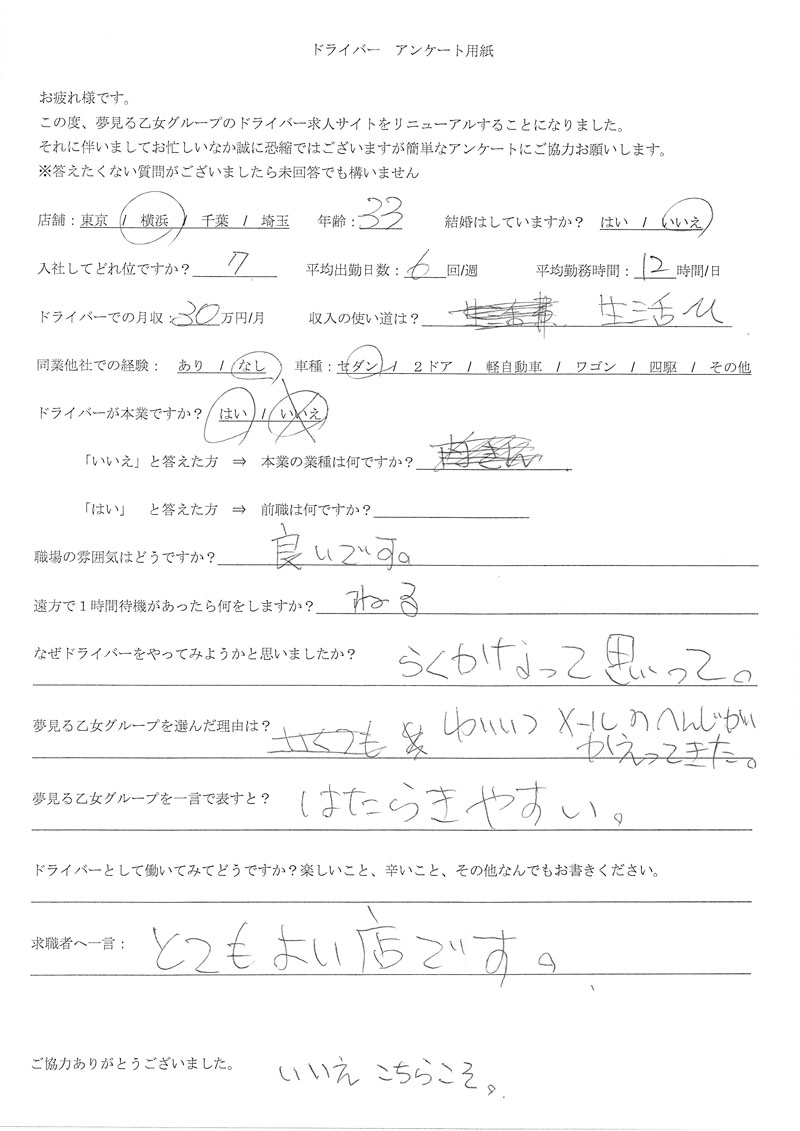 ドライバー　アンケート用紙
お疲れ様です。
この度、夢見る乙女グループのドライバー求人サイトをリニューアルすることになりました。
それに伴いましてお忙しいなか誠に恐縮ではございますが簡単なアンケートにご協力お願いします。
※答えたくない質問がございましたら未回答でも構いません
店舗：東京　/　横浜　/　千葉　/　埼玉　　年齢：33　　結婚はしていますか？　はい　/　いいえ
入社してどれ位ですか？ 7　　平均出勤日数：6 回/週　　平均勤務時間：12 時間/日
ドライバーでの月収：30 万円/月　　収入の使い道は？ 生活費 生活ひ
同業他社での経験：　あり　/　なし　　車種：セダン　/　２ドア　/　軽自動車　/　ワゴン　/　四駆　/　その他
ドライバーが本業ですか？　はい　/　いいえ
「いいえ」と答えた方　⇒　本業の業種は何ですか？
「はい」　と答えた方　⇒　前職は何ですか？
職場の雰囲気はどうですか？ 良いです。
遠方で１時間待機があったら何をしますか？ ねる
なぜドライバーをやってみようかと思いましたか？ らくかなって思いって。
夢見る乙女グループを選んだ理由は？ メールのへんじがい
かえってきた。
夢見る乙女グループを一言で表すと？ はたらきやすい。
ドライバーとして働いてみてどうですか？楽しいこと、辛いこと、その他なんでもお書きください。
求職者へ一言： とてもよい店です。
ご協力ありがとうございました。 いいえ こちらこそ。